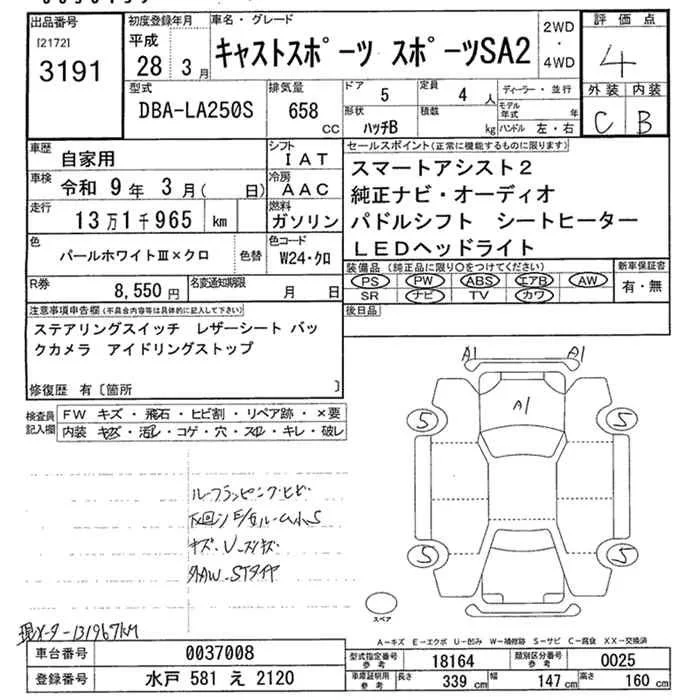 出品番号
[2172]
3191
初度登録年月
平成
28 3月
車名・グレード
キャストスポーツ スポーツSA2
2WD
・
4WD
評価点
4
外装 内装
C B
型式
DBA-LA250S
排気量
658
CC
ドア
5
定員
4 人
形状
ハッチB
積載
kg
ディーラー・並行
モデル年式 年
ハンドル 左・右
車歴
自家用
シフト
IAT
車検
令和 9年 3月( 日)
冷房
AAC
走行
13万1千965 km
燃料
ガソリン
色
パールホワイトⅢ×クロ
色替
色コード
W24・クロ
R券
8,550円
名変通知期限
月 日
セールスポイント(正常に機能するものに限ります)
スマートアシスト2
純正ナビ・オーディオ
パドルシフト シートヒーター
LEDヘッドライト
装備品(純正品に限り○をつけてください)
PS PW ABS エアB AW
SR ナビ TV カワ
新車保証書
有・無
後日品
注意事項申告欄(不具合内容等は具体的に記入して下さい)
ステアリングスイッチ レザーシート バッ
クカメラ アイドリングストップ
修復歴 有〔箇所 〕
検査員
記入欄
FW キズ・飛石・ヒビ割・リペア跡・×要
内装 キズ・汚レ・コゲ・穴・スレ・キレ・破レ
ルーフラッピング・ヒビ
キズ・U・スリキズ
外AW、STタイヤ
現メーター131967KM
A1 A1
A1
5 5
5 5
スペア
A−キズ E−エクボ U−凹み W−補修跡 S−サビ C−腐食 XX−交換済
車台番号
0037008
登録番号
水戸 581 え 2120
型式指定番号
参考
18164
類別区分番号
参考
0025
車庫証明用
参考
長さ
339 cm
幅
147 cm
高さ
160 cm